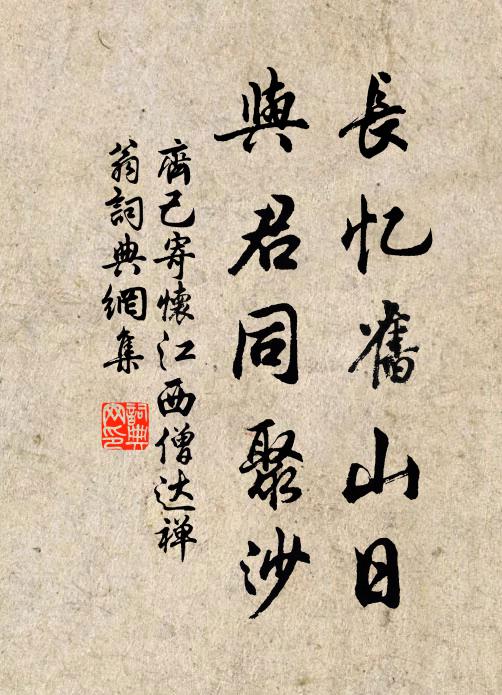 長忆舊山日
與君同聚沙
齊己寄懷江西僧达禅
翁詞典網集
詞典网印